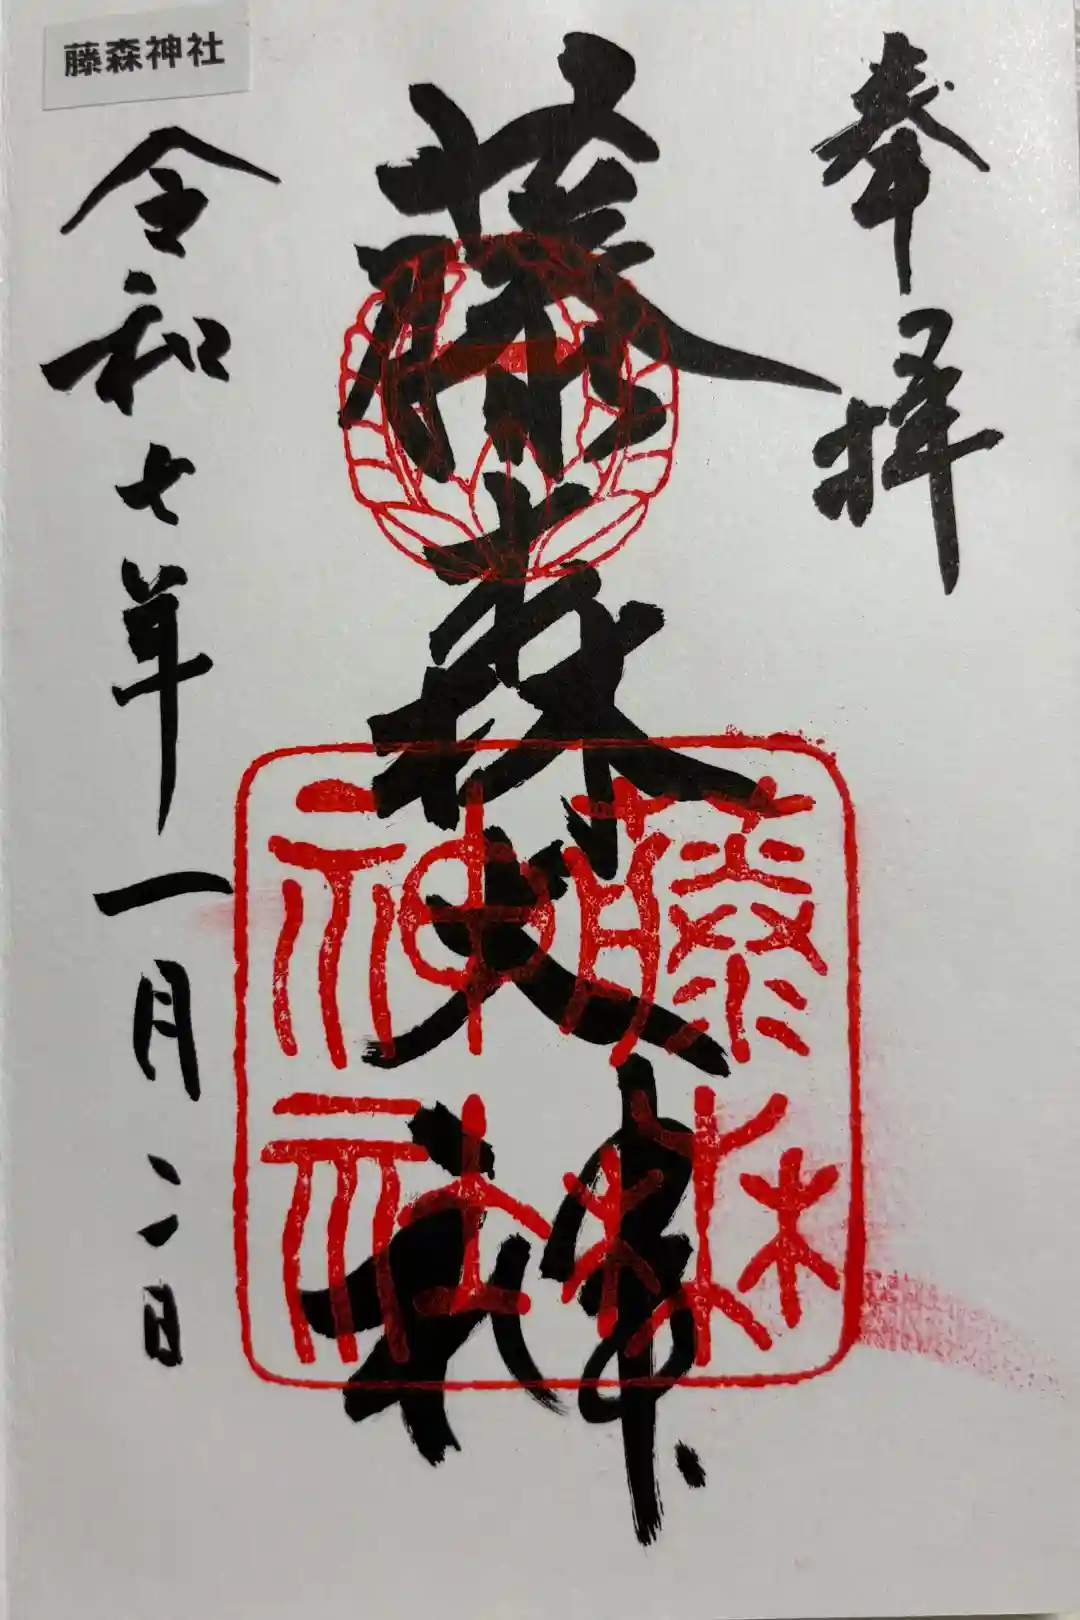 藤森神社
奉拝
藤森大神
藤森
神社
令和七年一月二日